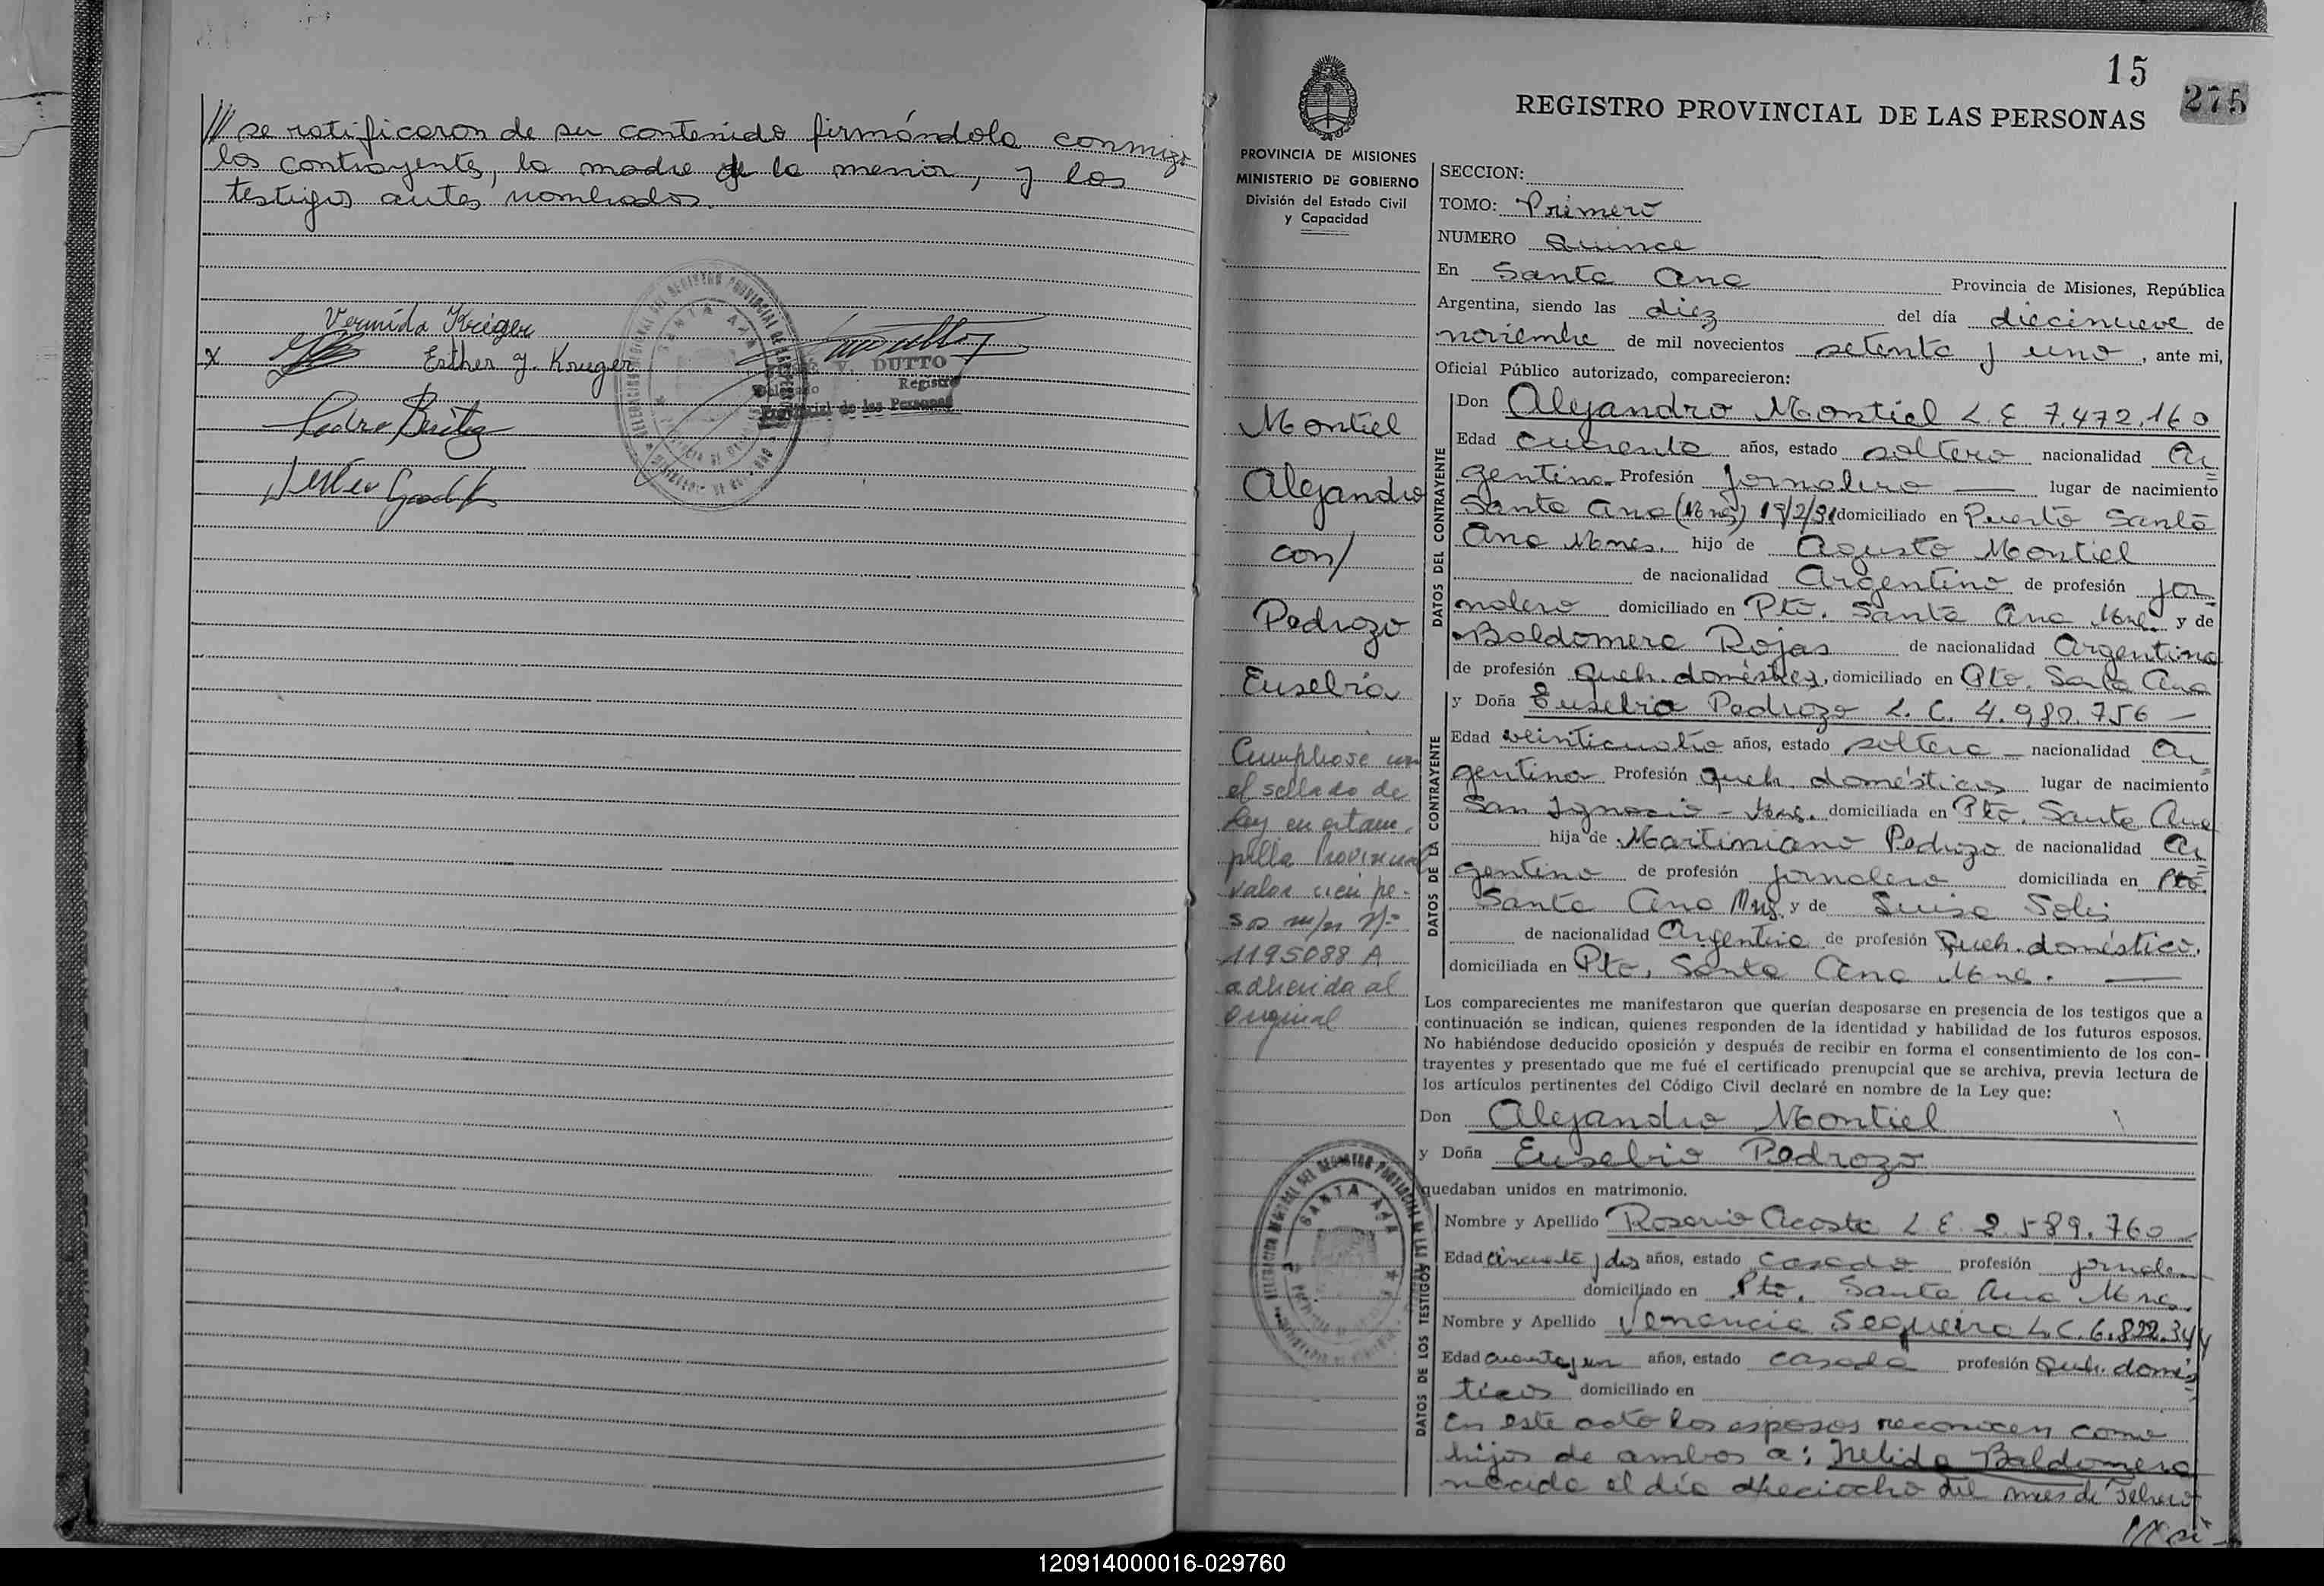 /// se ratificaron de su contenido firmándola conmigo
los contrayentes, la madre de la menor, y los
testigos antes nombrados.
Vermida Kriger
x Esther J. Kruger
V. DUTTO
Registro
Provincial de las Personas
Pedro Benitez
SANTA ANA
15
275
REGISTRO PROVINCIAL DE LAS PERSONAS
PROVINCIA DE MISIONES
MINISTERIO DE GOBIERNO
División del Estado Civil
y Capacidad
Montiel
Alejandro
con/
Pedrozo
Eusebia
Cumpliose con
el sellado de
Ley en estam-
pilla Provincial
valor cien pe-
sos m/n Nº
1195088 A
adherida al
original
SANTA ANA
SECCION:
TOMO: Primero
NUMERO Quince
En Santa Ana Provincia de Misiones, República
Argentina, siendo las diez del día diecinueve de
noviembre de mil novecientos setenta y uno, ante mi,
Oficial Público autorizado, comparecieron:
DATOS DEL CONTRAYENTE
Don Alejandro Montiel L.E 7.472.160
Edad cuarenta años, estado soltero nacionalidad Ar=
gentina Profesión Jornalero — lugar de nacimiento
Santa Ana (Mnes) 19/2/31 domiciliado en Puerto Santa
Ana Mnes. hijo de Agusto Montiel
de nacionalidad Argentino de profesión Jor=
nalero domiciliado en Pto. Santa Ana Mnes. y de
Baldomera Rojas de nacionalidad Argentina
de profesión Queh. domésticos, domiciliado en Pto. Santa Ana
DATOS DE LA CONTRAYENTE
y Doña Eusebia Pedrozo L. C. 4.980.756 —
Edad veinticuatro años, estado soltera — nacionalidad Ar=
gentina Profesión Queh. domésticos lugar de nacimiento
San Ignacio - Mnes. domiciliada en Pto. Santa Ana
hija de Martiniano Pedrozo de nacionalidad Ar=
gentino de profesión Jornalero domiciliada en Pto.
Santa Ana Mns. y de Luisa Solis
de nacionalidad Argentina de profesión Queh. doméstico.
domiciliada en Pto. Santa Ana Mnes. —
Los comparecientes me manifestaron que querían desposarse en presencia de los testigos que a
continuación se indican, quienes responden de la identidad y habilidad de los futuros esposos.
No habiéndose deducido oposición y después de recibir en forma el consentimiento de los con-
trayentes y presentado que me fué el certificado prenupcial que se archiva, previa lectura de
los artículos pertinentes del Código Civil declaré en nombre de la Ley que:
Don Alejandro Montiel
y Doña Eusebia Pedrozo
quedaban unidos en matrimonio.
DATOS DE LOS TESTIGOS
Nombre y Apellido Rosario Acosta L E 2.589.760 —
Edad cincuenta y dos años, estado casado profesión jornalero
domiciliado en Pto. Santa Ana Mnes.
Nombre y Apellido Venancia Sequeira L.C. 6.822.344
Edad cuarenta y un años, estado casada profesión Queh. domés=
ticos domiciliado en
En este acto los esposos reconocen como
hijos de ambos a: Nelida Baldomera
nacida el día dieciocho del mes de Febrero
120914000016-029760